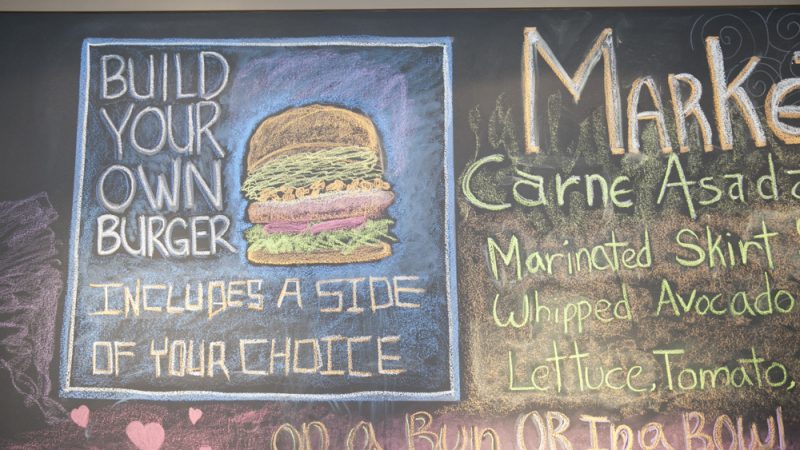 BUILD
YOUR
OWN
BURGER
INCLUDES A SIDE
OF YOUR CHOICE
Carne Asada
Marinated Skirt
Whipped Avocado
Lettuce, Tomato,
on a Bun OR In a BOWL